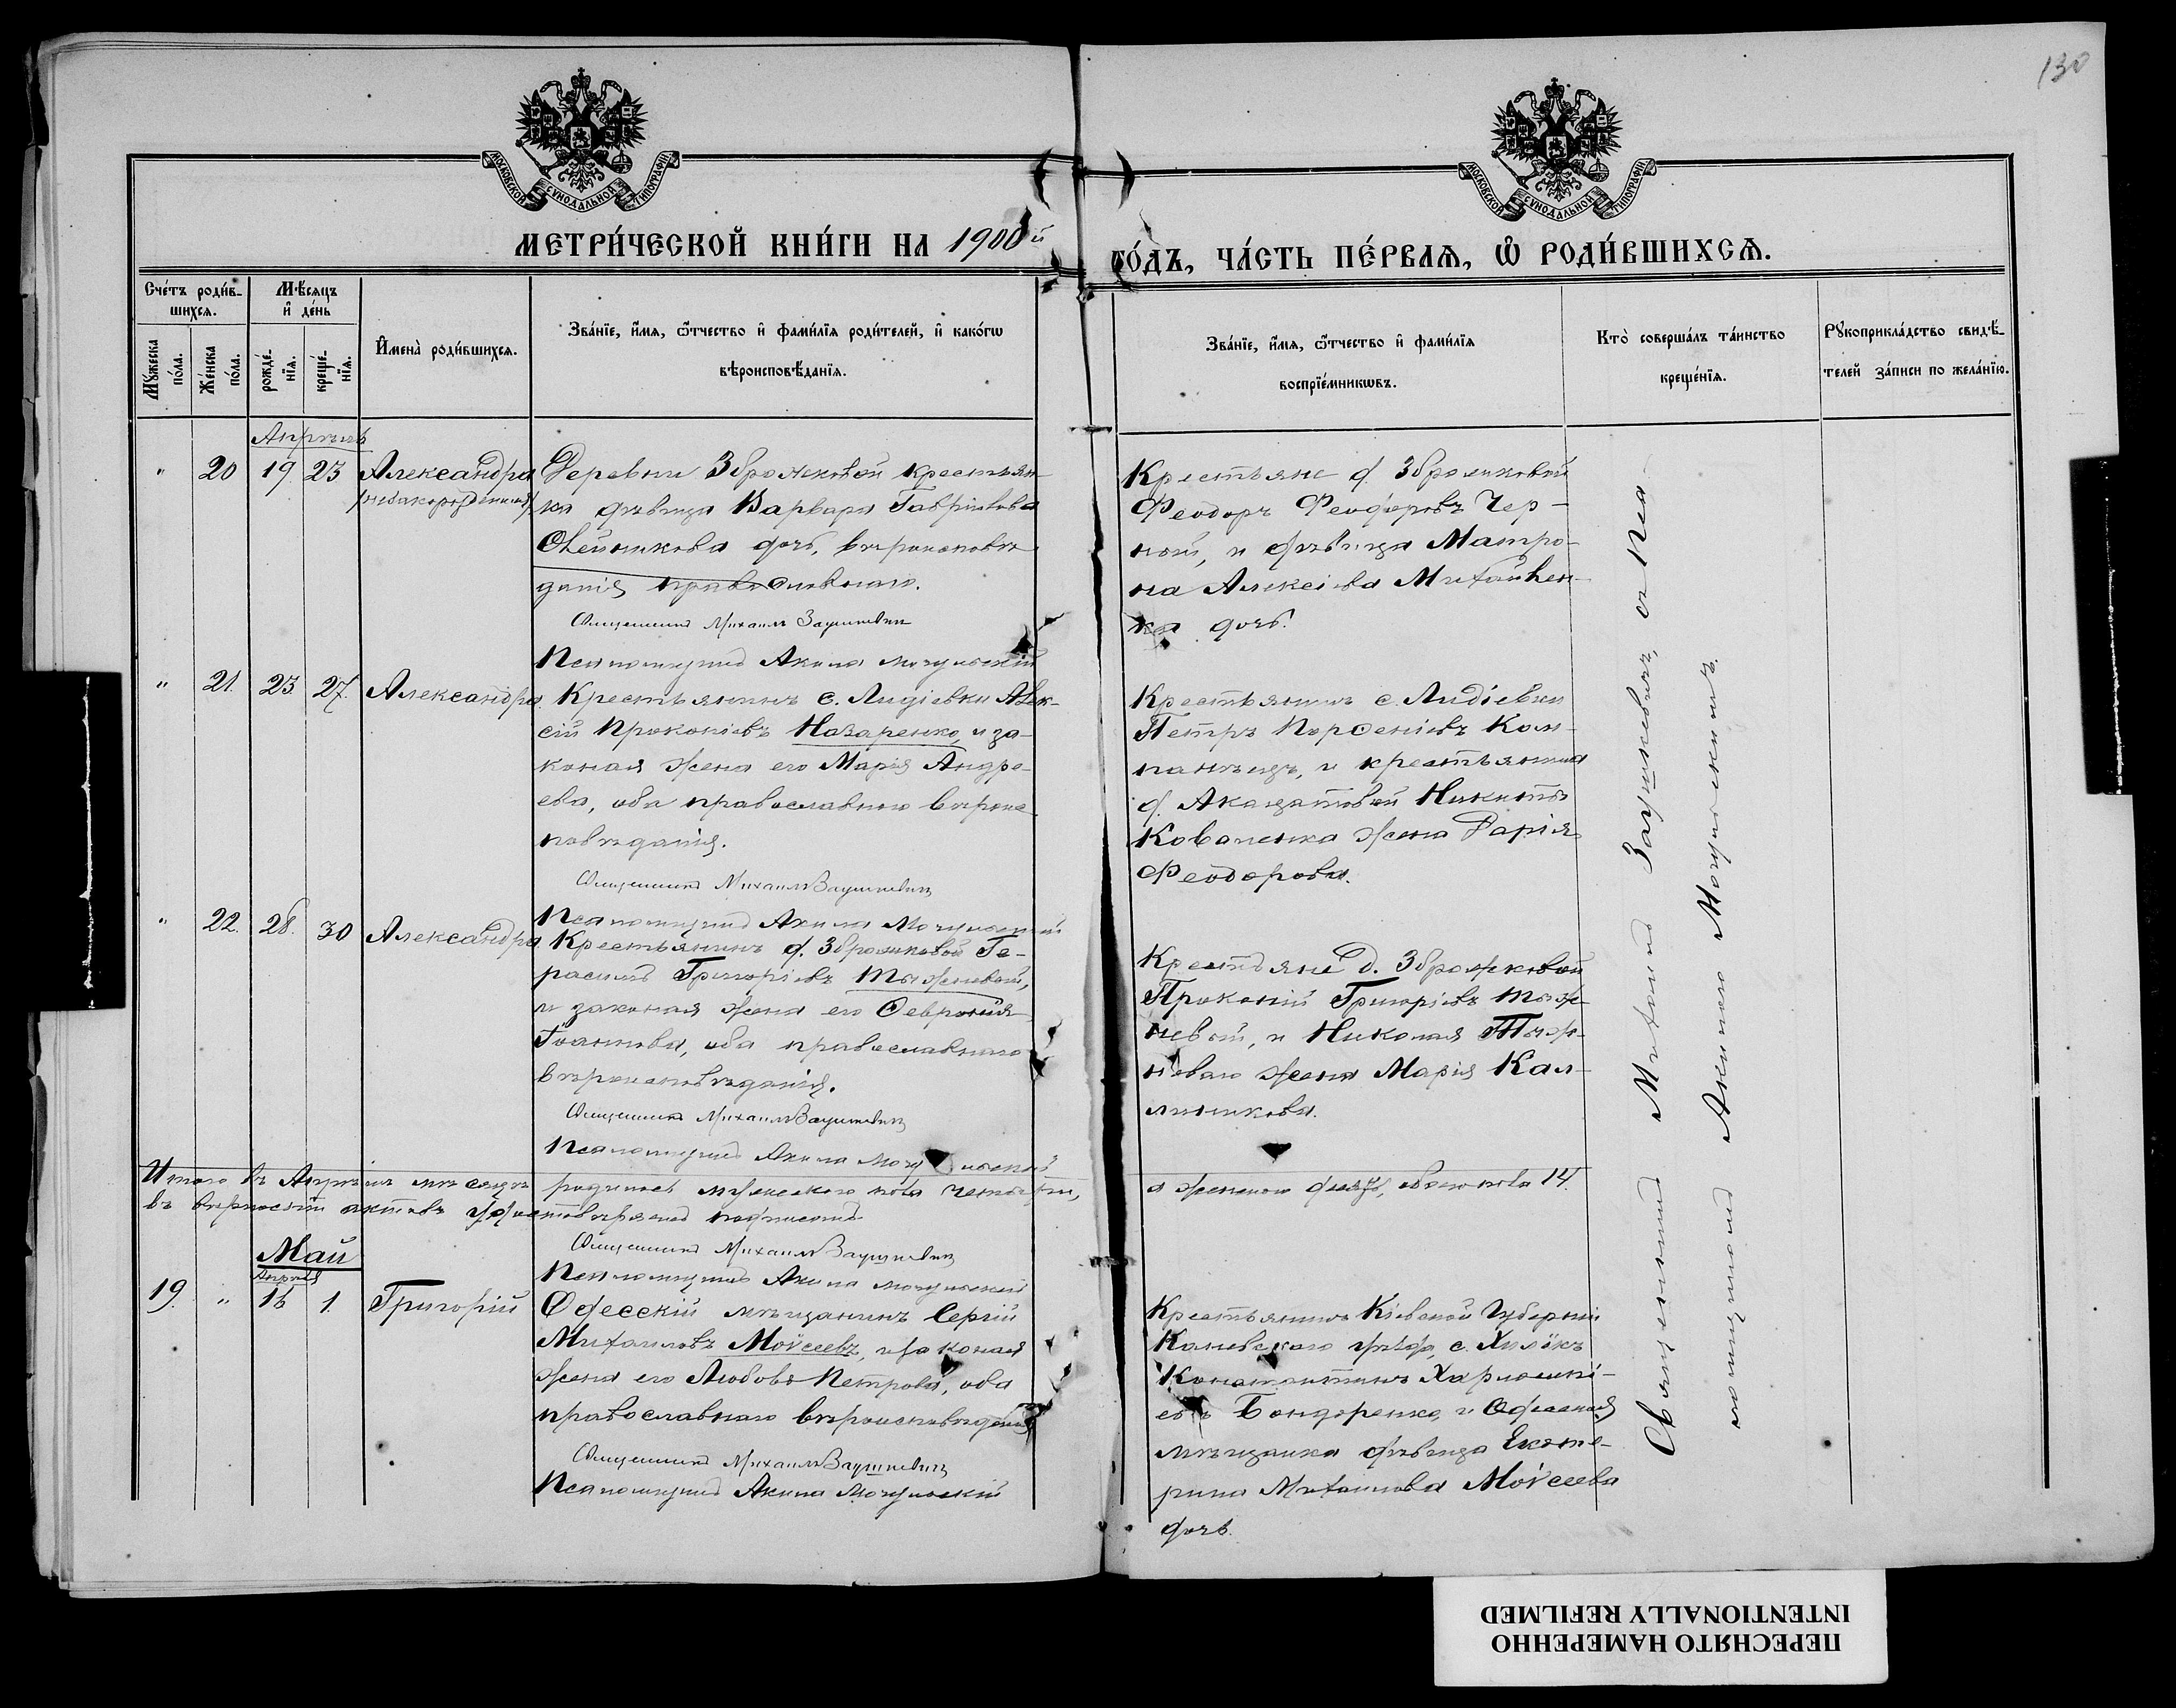 130
МОСКОВСКОЙ СѴНОДАЛЬНОЙ ТИПОГРАФІИ
МОСКОВСКОЙ СѴНОДАЛЬНОЙ ТИПОГРАФІИ
МЕТРИ́ЧЕСКОЙ КНИ́ГИ НА 1900й
ГО́ДЪ, ЧА́СТЬ ПЕ́РВАѦ, Ѡ҆ РОДИ́ВШИХСѦ.
Сче́тъ роди́в-
шихсѧ.
Мѣ́сѧцъ
и҆ де́нь
Мꙋ́жеска
по́ла.
Же́нска
по́ла.
рожде́-
нїѧ.
креще́-
нїѧ.
И҆мена̀ роди́вшихсѧ.
Зва́нїе, и҆́мѧ, ѻ҆́тчество и҆ фами́лїѧ роди́телей, и҆ како́гѡ
вѣроисповѣ́данїѧ.
Зва́нїе, и҆́мѧ, ѻ҆́тчество и҆ фами́лїѧ
воспрїе́мникѡвъ.
Кто̀ соверша́лъ та́инство
креще́нїѧ.
Рꙋкоприкла́дство свидѣ́-
телей за́писи по жела́нїю.
Апрѣль
" 20 19 23 Александра
(незакорожденная)
Деревни Зброжковой крестьян-
ка дѣвица Варвара Гаврiилова
Олейникова дочь, вѣроисповѣ-
данія православнаго.
Священникъ Михаилъ Заушкевич
Псаломщикъ Акила Могульскій
Крестьяне д. Зброжковой
Феодоръ Феодоровъ Чер-
ной, и дѣвица Матро-
на Алексіева Михайлен-
ка дочь.
" 21. 23 27. Александра
Крестьянинъ с. Лидіевки Алек-
сій Прокопіевъ Назаренко, и за-
коная жена его Марія Андре-
ева, оба православнаго вѣроис-
повѣданія.
Священникъ Михаилъ Заушкевич
Псаломщикъ Акила Могульскій
Крестьянинъ с. Лидіевки
Петръ Порфеніевъ Ком-
панѣецъ, и крестьянина
д. Акацатовой Никиты
Коваленка жена Дарія
Феодорова.
" 22. 28. 30 Александра
Крестьянинъ д. Зброжковой Ге-
расимъ Григоріевъ Тяжневой,
и законая жена его Февронія
Іоаннова, оба православнаго
вѣроисповѣданія.
Священникъ Михаилъ Заушкевич
Псаломщикъ Акила Могульскій
Крестьяне д. Зброжковой
Прокопій Григоріевъ Тяж-
невой, и Николая Тяж-
неваго жена Марія Кал-
линикова.
Итого въ Апрѣлѣ мѣсяцѣ родилось мужескаго пола четыре,
а женскаго десять, обоего пола 14.
въ вѣрности актовъ удостовѣряемъ подписомъ
Священникъ Михаилъ Заушкевич
Псаломщикъ Акила Могульскій
Май
Апрѣля
19. " 16 1. Григорій
Одесскій мѣщанинъ Сергій
Михаиловъ Моѵсеевъ, и законая
жена его Любовь Петрова, оба
православнаго вѣроисповѣданія
Священникъ Михаилъ Заушкевич
Псаломщикъ Акила Могульскій
Крестьянинъ Кіевской Губерніи
Каневскаго уѣзда, с. Хилокъ
Константинъ Харлампі-
евъ Бондаренко, и Одесская
мѣщанка дѣвица Екате-
рина Михаилова Моѵсеева
дочь.
Священникъ Михаилъ Заушкевичъ, съ Пса-
ломщикомъ Акилою Могульскимъ.
ПЕРЕСНЯТО НАМЕРЕННО
INTENTIONALLY REFILMED